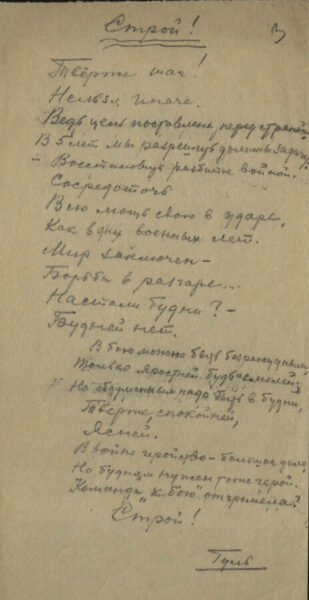 Строй!
3
Твёрже шаг!
Нельзя иначе.
Ведь цель поставлена перед страной
В 5 лет мы разрешить должны задачу:
Восстановить разбитое войной.
Сосредоточь
Всю мощь свою в ударе,
Как в дни военных лет.
Мир заключен –
Борьба в разгаре...
Настали будни? –
Будней нет.
В бою можно быть безрассудным,
Только яростней будь и смелей.
Но обдуманным надо быть в будни,
Твёрже, спокойней,
Ясней.
В войне геройство – большое дело,
Но будням нужен тоже герой.
Команда "к бою" отгремела?
Строй!